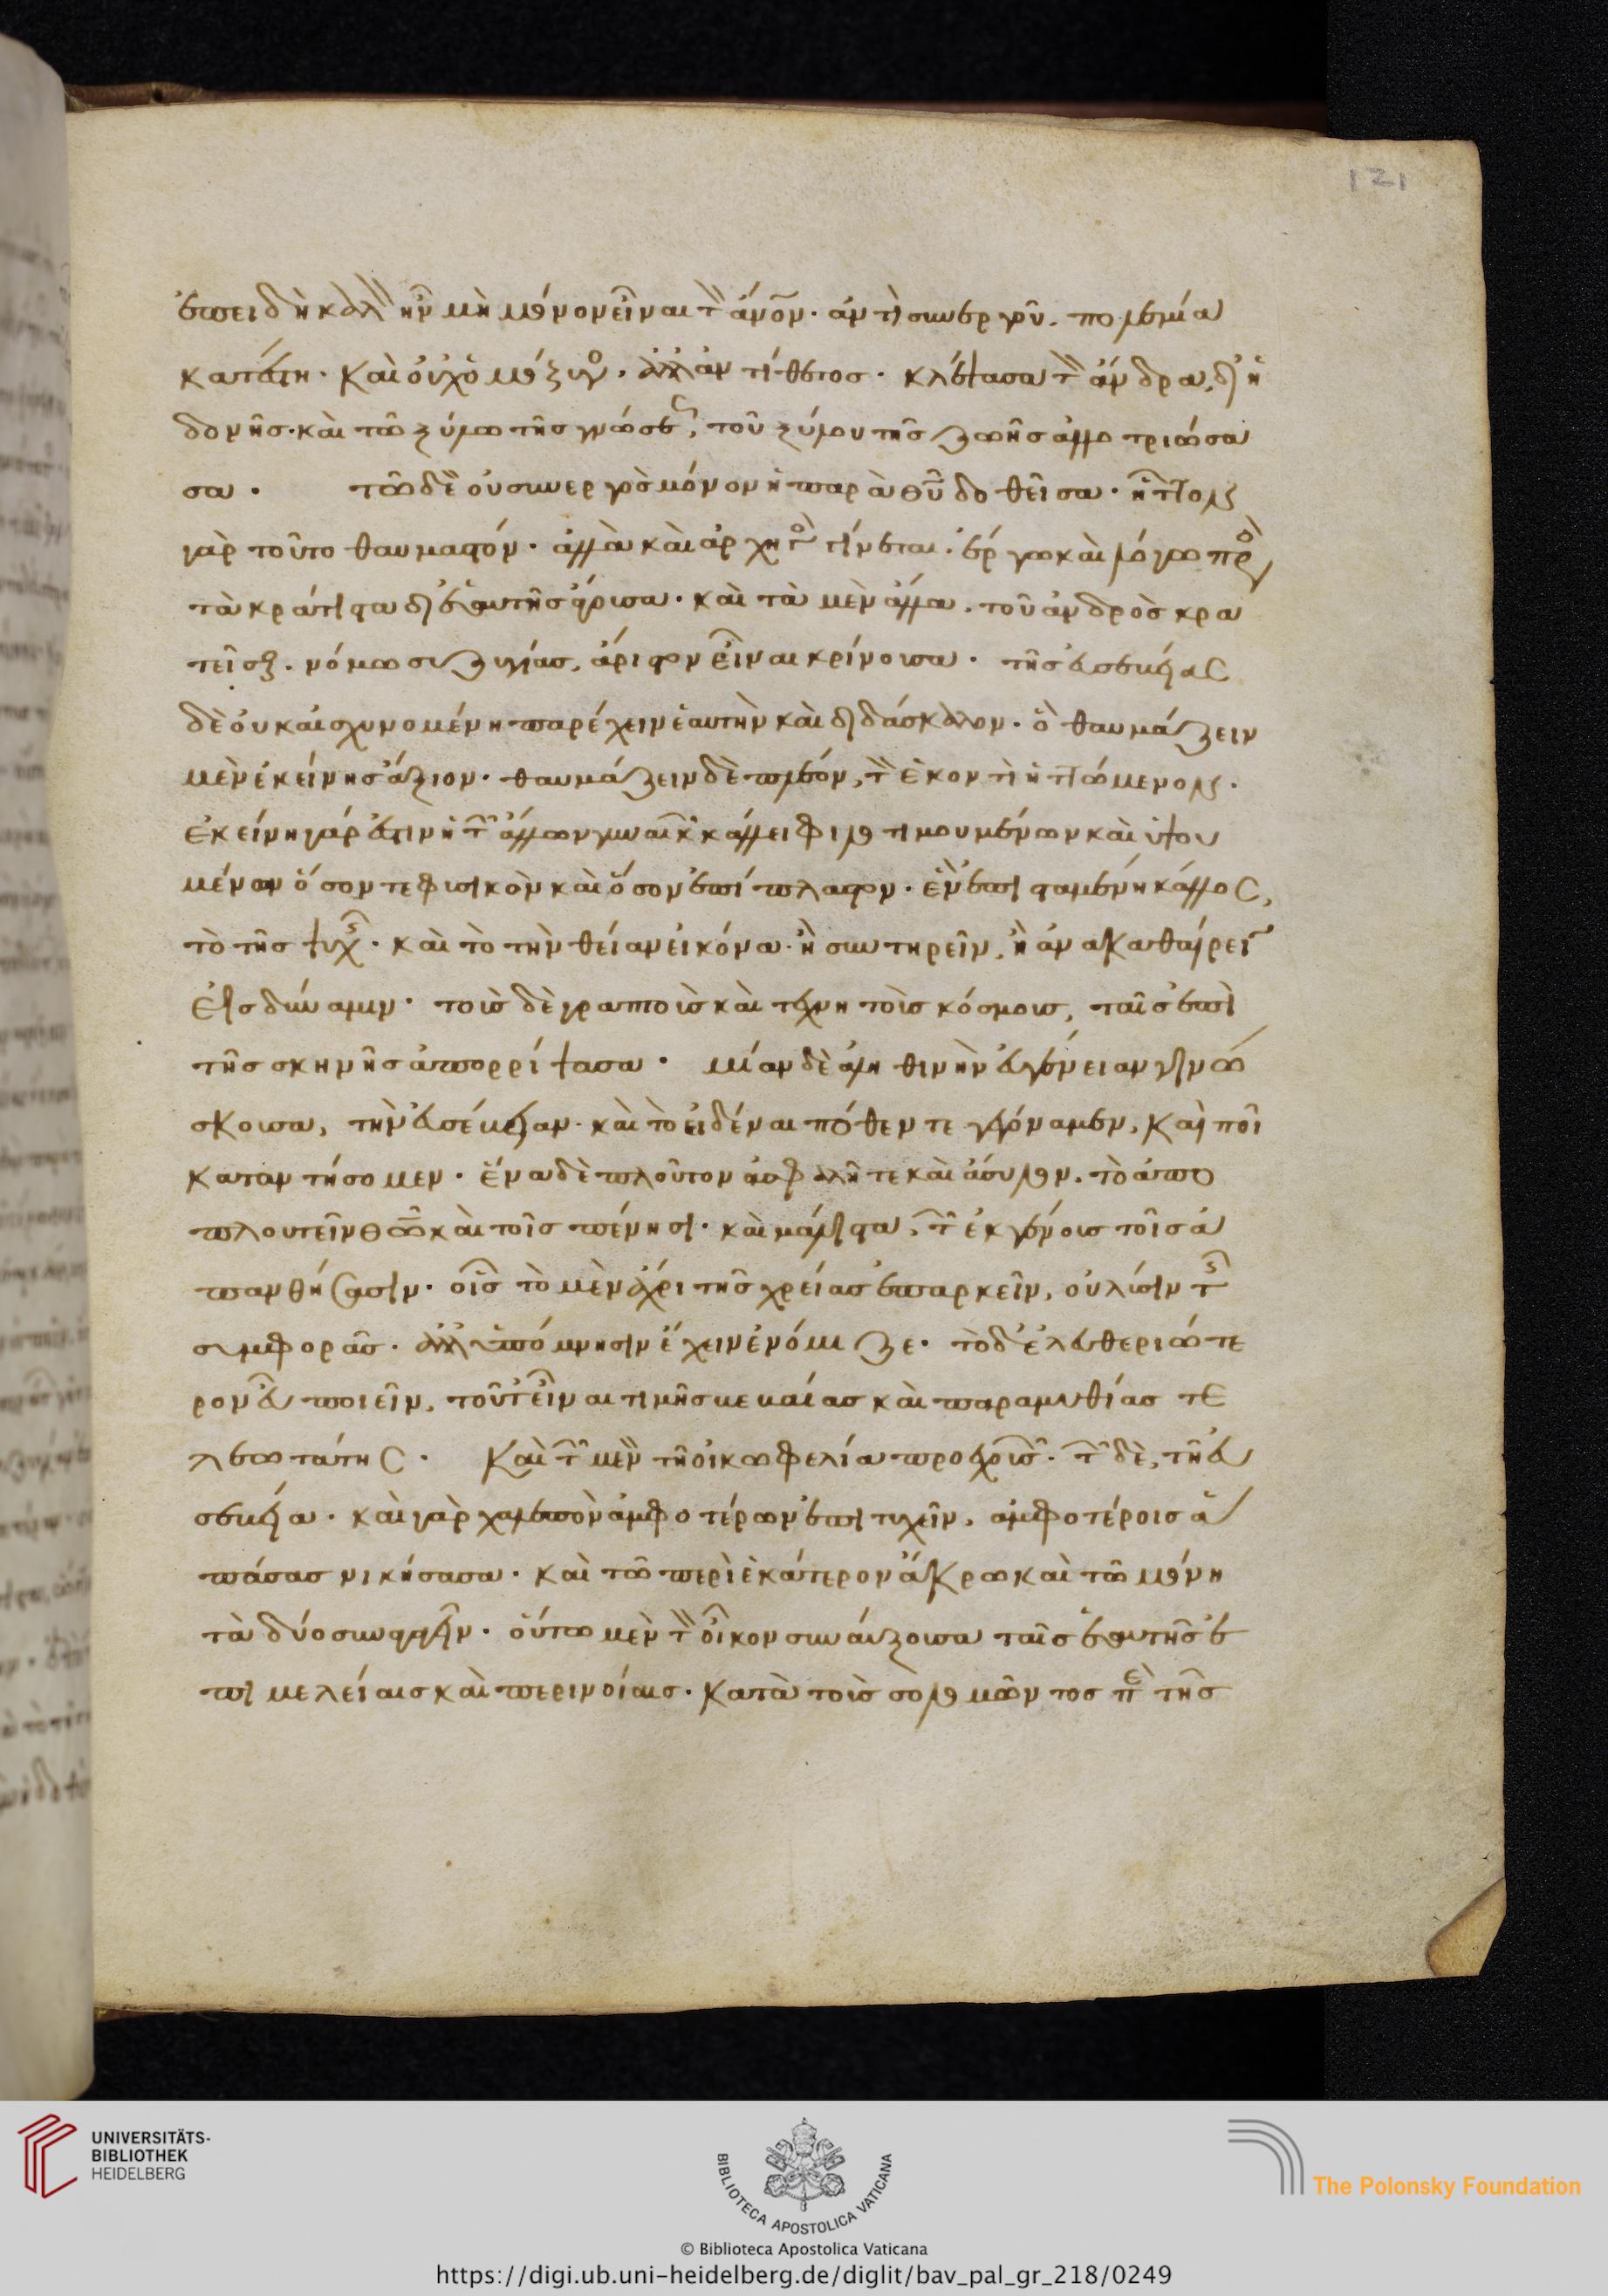 121
ἐπειδὴ καλὸν ἦν μὴ μόνον εἶναι τὸν ἄνον· ἀντὶ συνεργοῦ. πολεμία
κατέστη· καὶ οὐχ ὁμόζυγος. ἀλλ' ἀντίθετος. κλέψασα τὸν ἄνδρα, δι' ἡ
δονῆς· καὶ τῶ ξύλω τῆς γνώσεως, τοῦ ξύλου τῆς ζωῆς ἀλλοτριώσα
σα. τῶ δὲ οὐ συνεργὸς μόνον ἡ παρὰ θυ δοθεῖσα. ἧττον
γὰρ τοῦτο θαυμαστόν. ἀλλὰ καὶ ἀρχηγὸς γίνεται. ἔργω καὶ λόγω πρὸς
τὰ κράτιστα δι' ἑαυτῆς ἄγουσα. καὶ τὰ μὲν ἄλλα. τοῦ ἀνδρὸς κρα
τεῖσθαι. νόμω συζυγίας, ἄριστον εἶναι κρίνουσα. τῆς εὐσεβείας
δὲ οὐκ αἰσχυνομένη παρέχειν ἑαυτὴν καὶ διδάσκαλον. ὃ θαυμάζειν
μὲν ἐκείνης ἄξιον. θαυμάζειν δὲ πλέον, τὸν ἑκοντὶ ἡττώμενον.
ἐκείνη γάρ ἐστιν ἡ τῶν ἄλλων γυναικῶν κάλλει φιλοτιμουμένων καὶ ὑψου
μένων ὅσον τε φυσικὸν καὶ ὅσον ἐπίπλαστον. ἓν ἐπισταμένη κάλλος,
τὸ τῆς ψυχῆς. καὶ τὸ τὴν θείαν εἰκόνα. ἢ συντηρεῖν, ἢ ἀνακαθαίρειν
εἰς δύναμιν. τοὺς δὲ γραπτοὺς καὶ τέχνη τοὺς κόσμους, ταῖς ἐπὶ
τῆς σκηνῆς ἀπορρίψασα. μίαν δὲ ἀληθινὴν εὐγένειαν γινώ
σκουσα, τὴν εὐσέβειαν. καὶ τὸ εἰδέναι πόθεν τε γεγόναμεν, καὶ ποῖ
καταντήσομεν. ἕνα δὲ πλοῦτον ἀσφαλῆ τε καὶ ἄσυλον. τὸ ἀπο
πλουτεῖν θω καὶ τοῖς πένησι. καὶ μάλιστα, τῶν ἐκ γένους τοῖς ἀ
πανθήσασιν. οἷς τὸ μὲν ἄχρι τῆς χρείας ἐπαρκεῖν, οὐ λύσιν τῆς
συμφορᾶς. ἀλλ' ὑπόμνησιν ἔχειν ἐνόμιζε. τὸ δ' ἐλευθεριώτε
ρον εὖ ποιεῖν, τοῦτ' εἶναι τιμῆς βεβαίας καὶ παραμυθίας τε
λεωτάτης. Καὶ τῶν μὲν τῆ οἰκωφελία προεχουσῶν. τῶν δὲ, τῆ εὐ
σεβεία. καὶ γὰρ χαλεπὸν ἀμφοτέρων ἐπιτυχεῖν, ἀμφοτέροις ἁ
πάσας νικήσασα. καὶ τῶ περὶ ἑκάτερον ἄκρω καὶ τῶ μόνη
τὰ δύο συναγαγεῖν. οὕτω μὲν τὸν οἶκον συναύξουσα ταῖς ἑαυτῆς ἐ
πιμελείαις καὶ περινοίαις. κατὰ τοὺς σολομῶντος περὶ τῆς
UNIVERSITÄTS-
BIBLIOTHEK
HEIDELBERG
BIBLIOTECA APOSTOLICA VATICANA
The Polonsky Foundation
© Biblioteca Apostolica Vaticana
https://digi.ub.uni-heidelberg.de/diglit/bav_pal_gr_218/0249